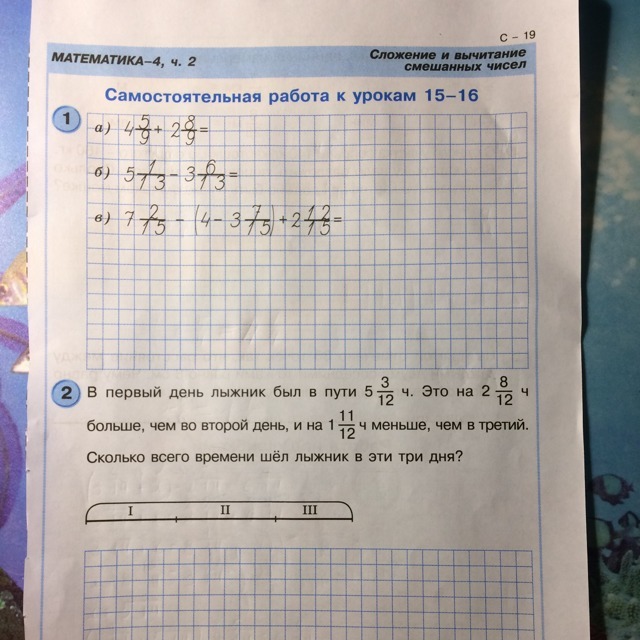 С – 19
МАТЕМАТИКА–4, ч. 2
Сложение и вычитание
смешанных чисел
Самостоятельная работа к урокам 15–16
1
а) 4 5/9 + 2 8/9 =
б) 5 1/13 – 3 6/13 =
в) 7 2/15 – (4 – 3 7/15) + 2 12/15 =
2
В первый день лыжник был в пути 5 3/12 ч. Это на 2 8/12 ч
больше, чем во второй день, и на 1 11/12 ч меньше, чем в третий.
Сколько всего времени шёл лыжник в эти три дня?
I II III